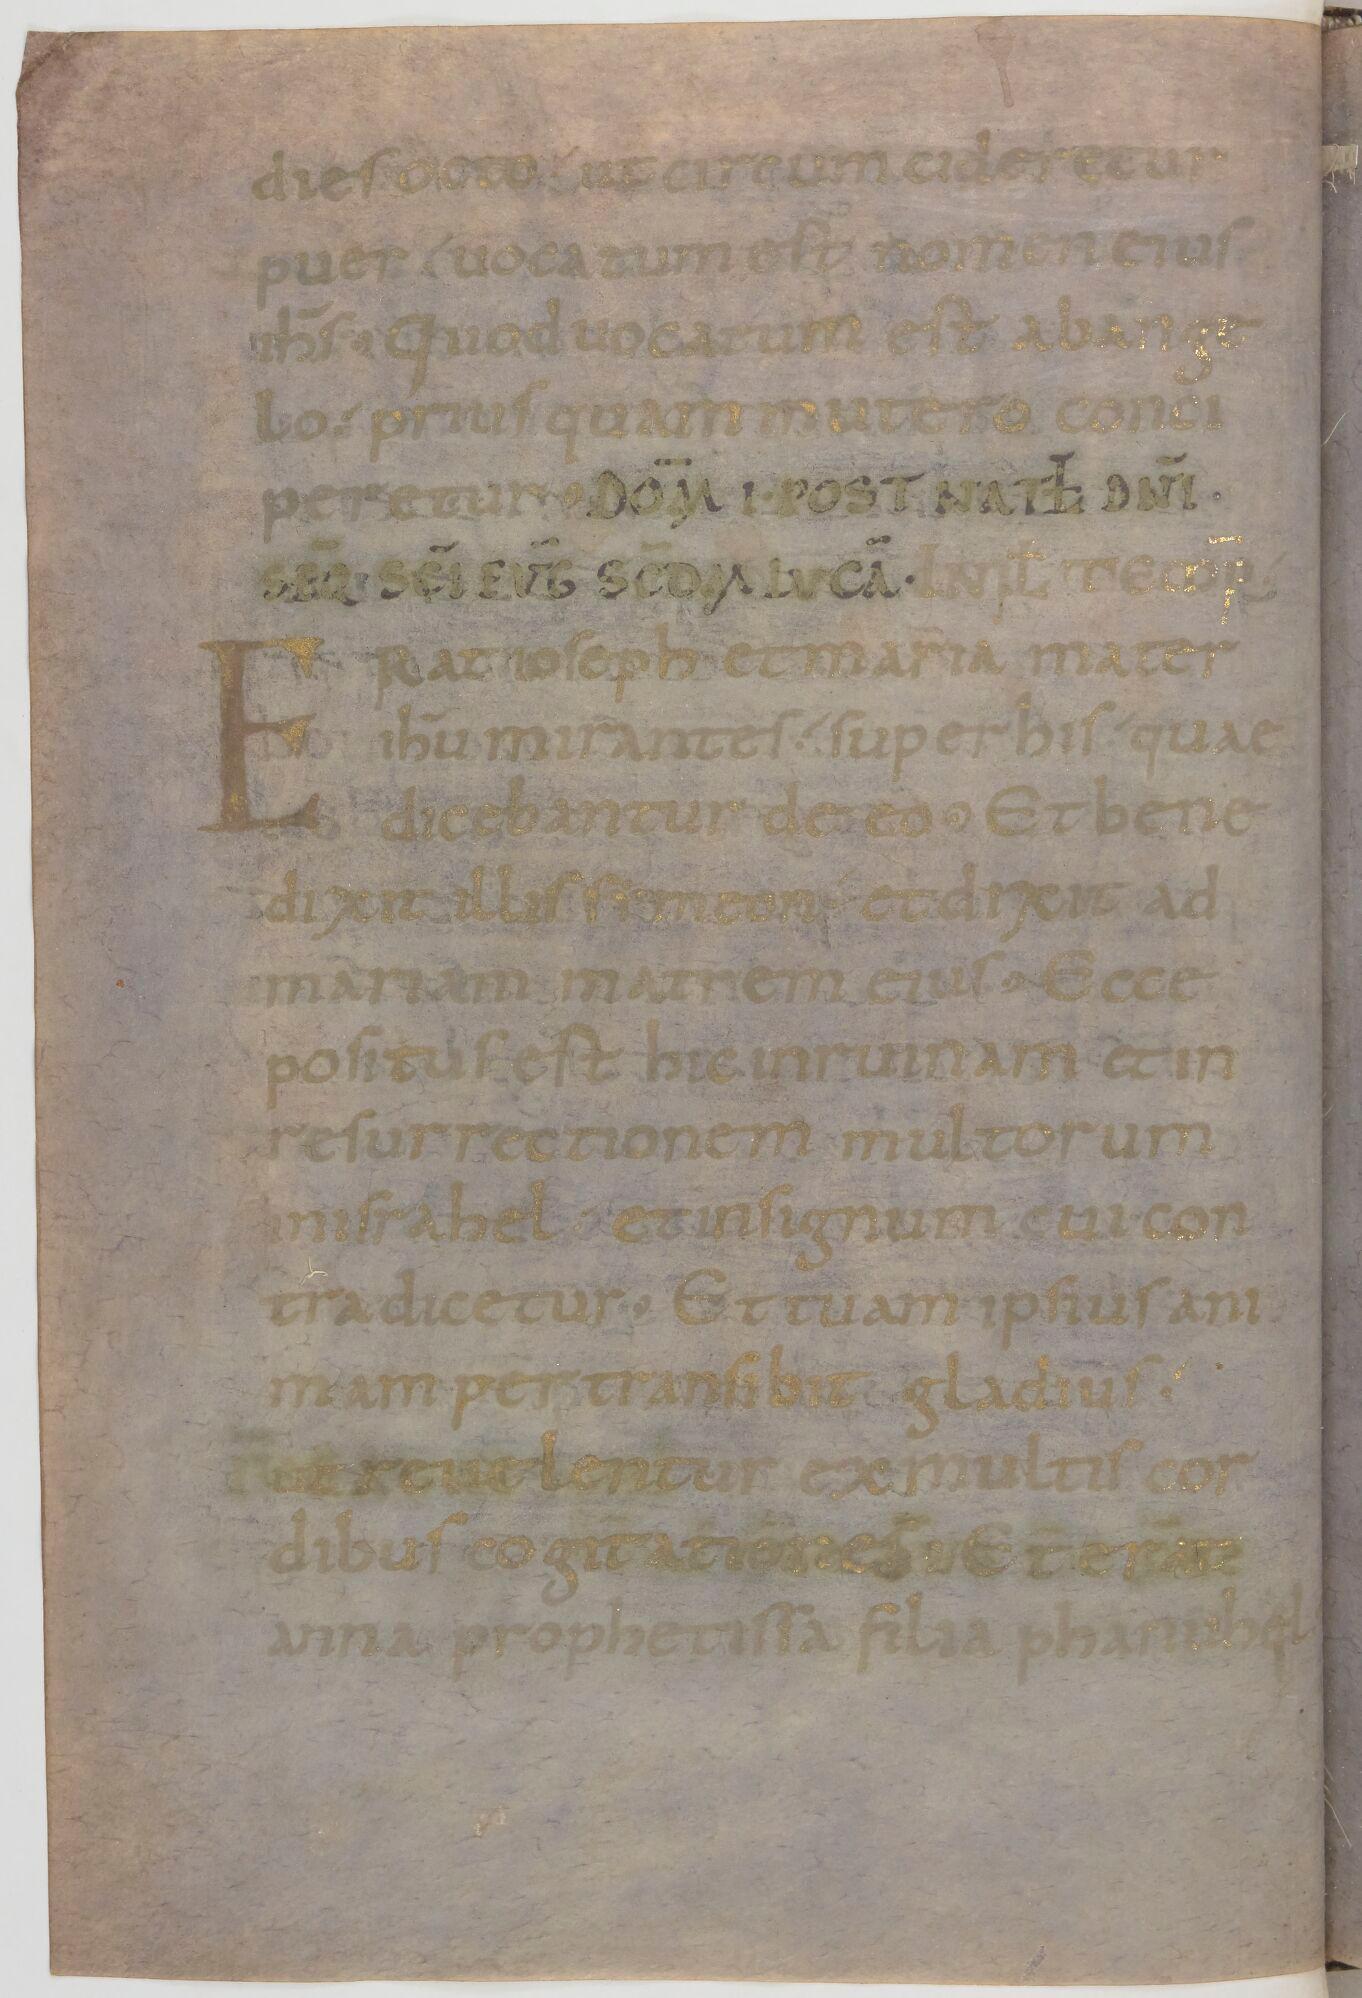 dies octo ut circumcideretur
puer uocatum est nomen eius
ih̄s. Quod uocatum est ab ange
lo. priusquam in utero conci
peretur. DOM̄ I. POST NATŁ DN̄I.
SEQ̄ SC̄I EVḠ SC̄DM LVCĀ. IN IŁŁ TEMP̄R
ERat ioseph et maria mater
ih̄u mirantes. super his quae
dicebantur de eo. Et bene
dixit illis simeon et dixit ad
mariam matrem eius. Ecce
positus est hic in ruinam et in
resurrectionem multorum
in israhel. et in signum cui con
tradicetur. Et tuam ipsius ani
mam pertransibit gladius.
ut reuelentur ex multis cor
dibus cogitationes. Et erat
anna prophetissa filia phanuhel